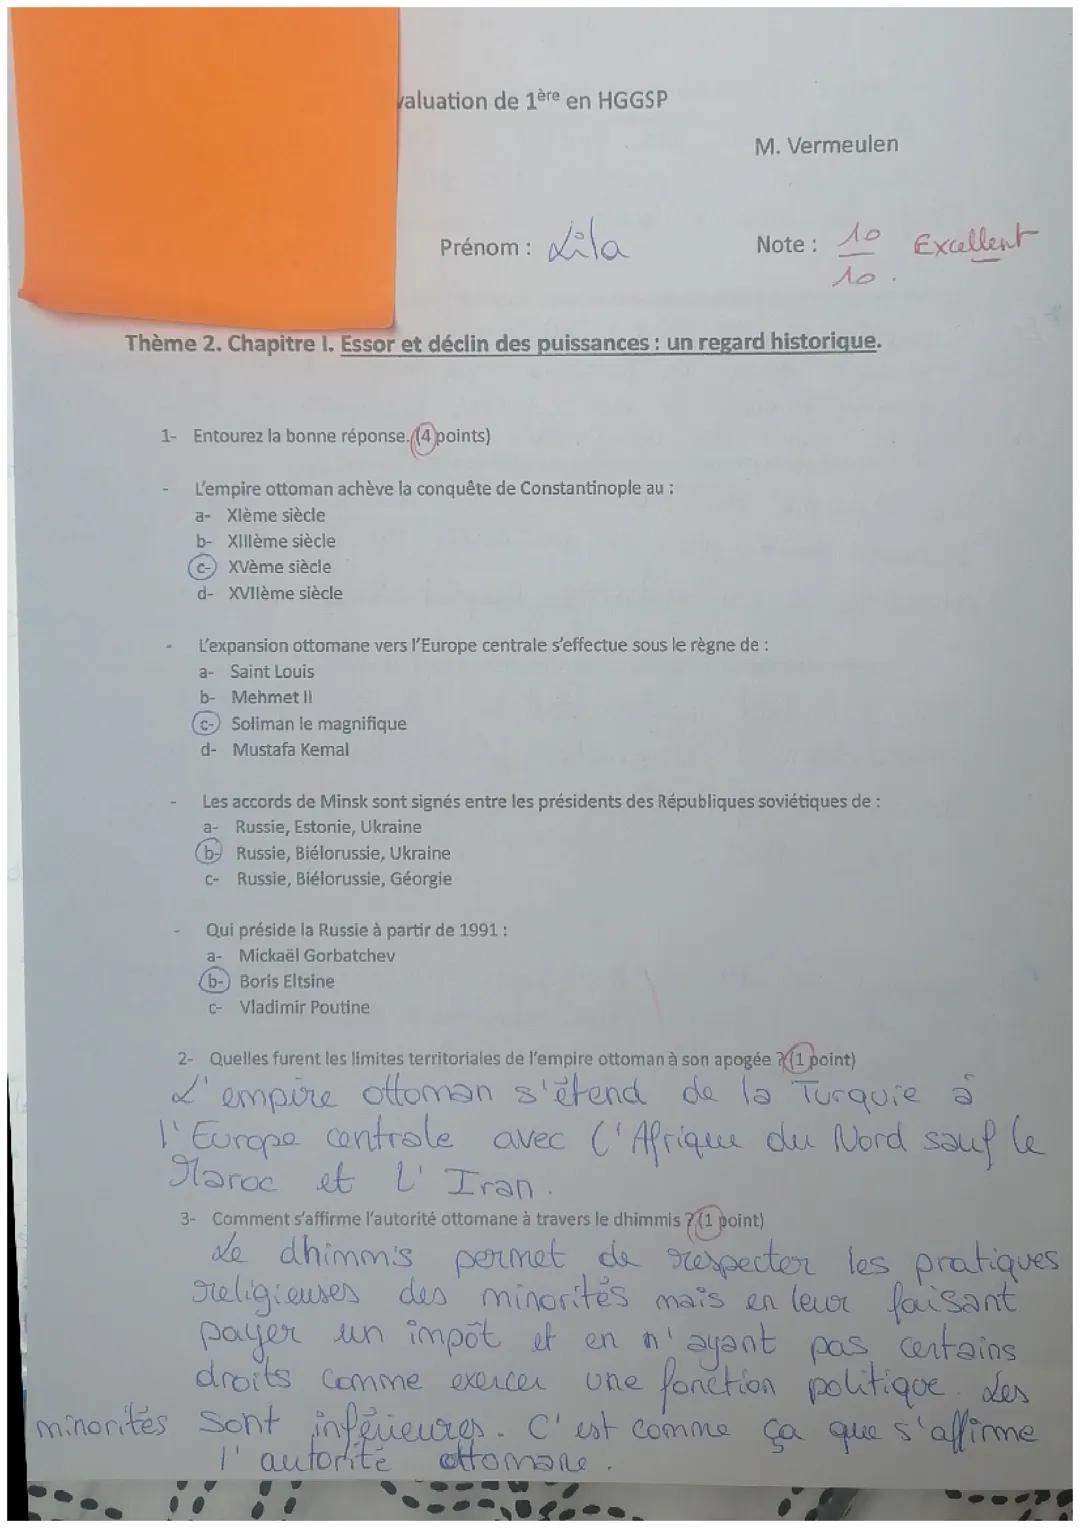 valuation de 1ère en HGGSP
M. Vermeulen
Prénom : Lila
Note : 10/10. Excellent
Thème 2. Chapitre I. Essor et déclin des puissances : un regard historique.
1- Entourez la bonne réponse. (4 points)
- L'empire ottoman achève la conquête de Constantinople au :
a- XIème siècle
b- XIIIème siècle
c- XVème siècle
d- XVIIème siècle
- L'expansion ottomane vers l'Europe centrale s'effectue sous le règne de :
a- Saint Louis
b- Mehmet II
c- Soliman le magnifique
d- Mustafa Kemal
- Les accords de Minsk sont signés entre les présidents des Républiques soviétiques de :
a- Russie, Estonie, Ukraine
b- Russie, Biélorussie, Ukraine
c- Russie, Biélorussie, Géorgie
- Qui préside la Russie à partir de 1991 :
a- Mickaël Gorbatchev
b- Boris Eltsine
c- Vladimir Poutine
2- Quelles furent les limites territoriales de l'empire ottoman à son apogée ? (1 point)
L'empire ottoman s'étend de la Turquie à
l'Europe centrale avec l'Afrique du Nord sauf le
Maroc et l'Iran.
3- Comment s'affirme l'autorité ottomane à travers le dhimmis ? (1 point)
Le dhimmis permet de respecter les pratiques
religieuses des minorités mais en leur faisant
payer un impôt et en n'ayant pas certains
droits comme exercer une fonction politique. Les
minorités sont inférieures. C'est comme ça que s'affirme
l'autorité ottomane.